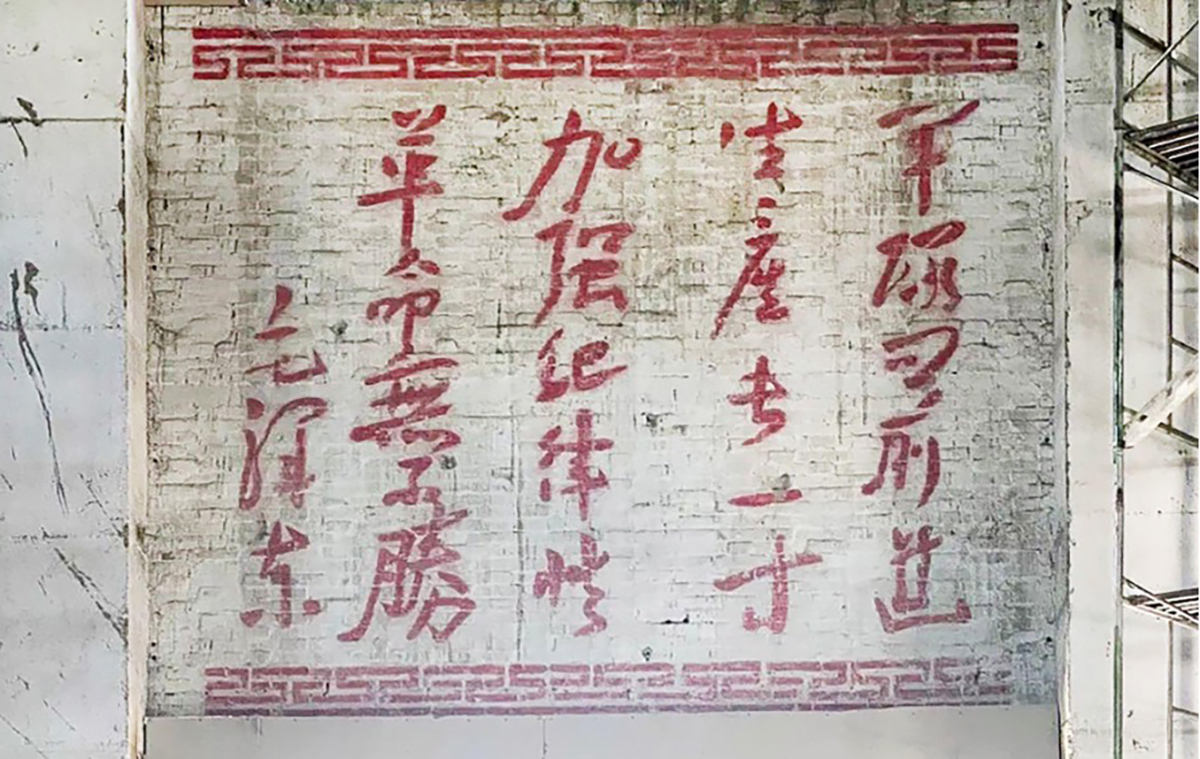 军队向前进
生产长一寸
加强纪律性
革命無不勝
毛澤东